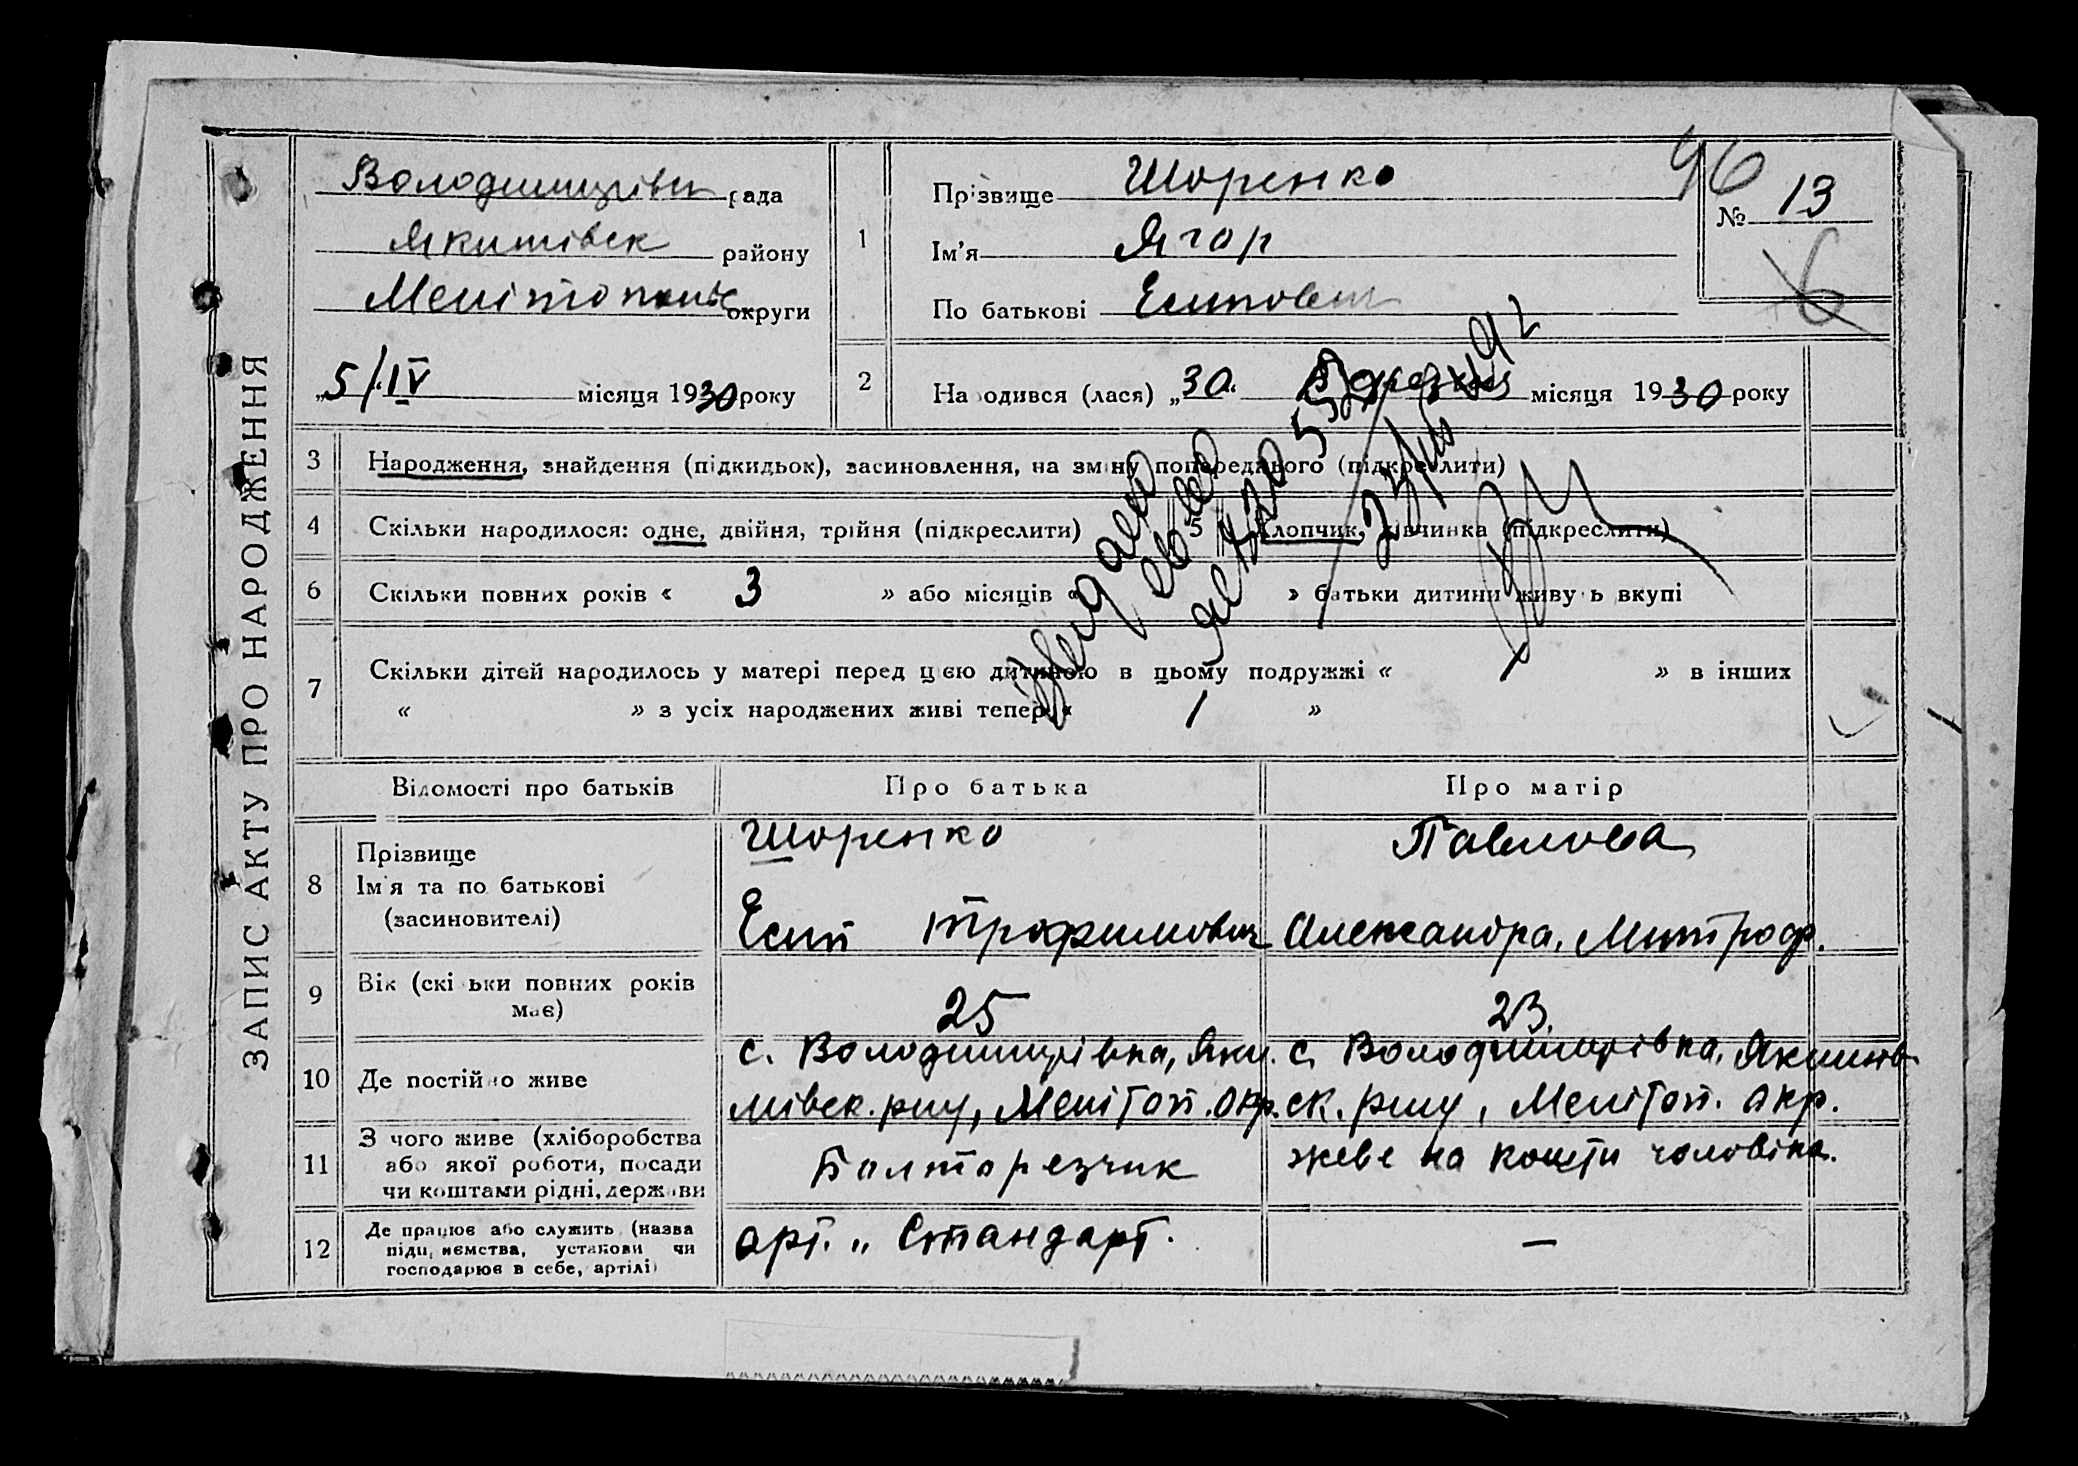 ЗАПИС АКТУ ПРО НАРОДЖЕННЯ
Володимирівськ рада
Якимівськ району
Мелітопільс округи
„5/IV місяця 1930 року
1
Прізвище Шоренко
Ім'я Ягор
По батькові Есипович
96
№ 13
6
2
Народився (лася) „30“ Березня місяця 1930 року
3 Народження, знайдення (підкидьок), засиновлення, на зміну попереднього (підкреслити)
4 Скільки народилося: одне, двійня, трійня (підкреслити)
5 Хлопчик, дівчинка (підкреслити)
6 Скільки повних років « 3 » або місяців « » батьки дитини живуть вкупі
7 Скільки дітей народилось у матері перед цією дитиною в цьому подружжі « 1 » в інших
« » з усіх народжених живі тепер « 1 »
Відомості про батьків
Про батька
Про матір
8
Прізвище
Ім'я та по батькові
(засиновителі)
Шоренко
Есип Трофимович
Павлова
Александра, Митроф.
9
Вік (скільки повних років
має)
25
23.
10
Де постійно живе
с. Володимирівка, Яки.
мівск. р-ну, МеліТоп. окр.
с. Володимирівка, Якимів-
ск. р-ну, МеліТоп. окр.
11
З чого живе (хліборобства
або якої роботи, посади
чи коштами рідні, держави
Болторезчик
живе на кошти чоловіка.
12
Де працює або служить (назва
підприємства, установи чи
господарює в себе, артілі)
арт. „ Стандарт.
—